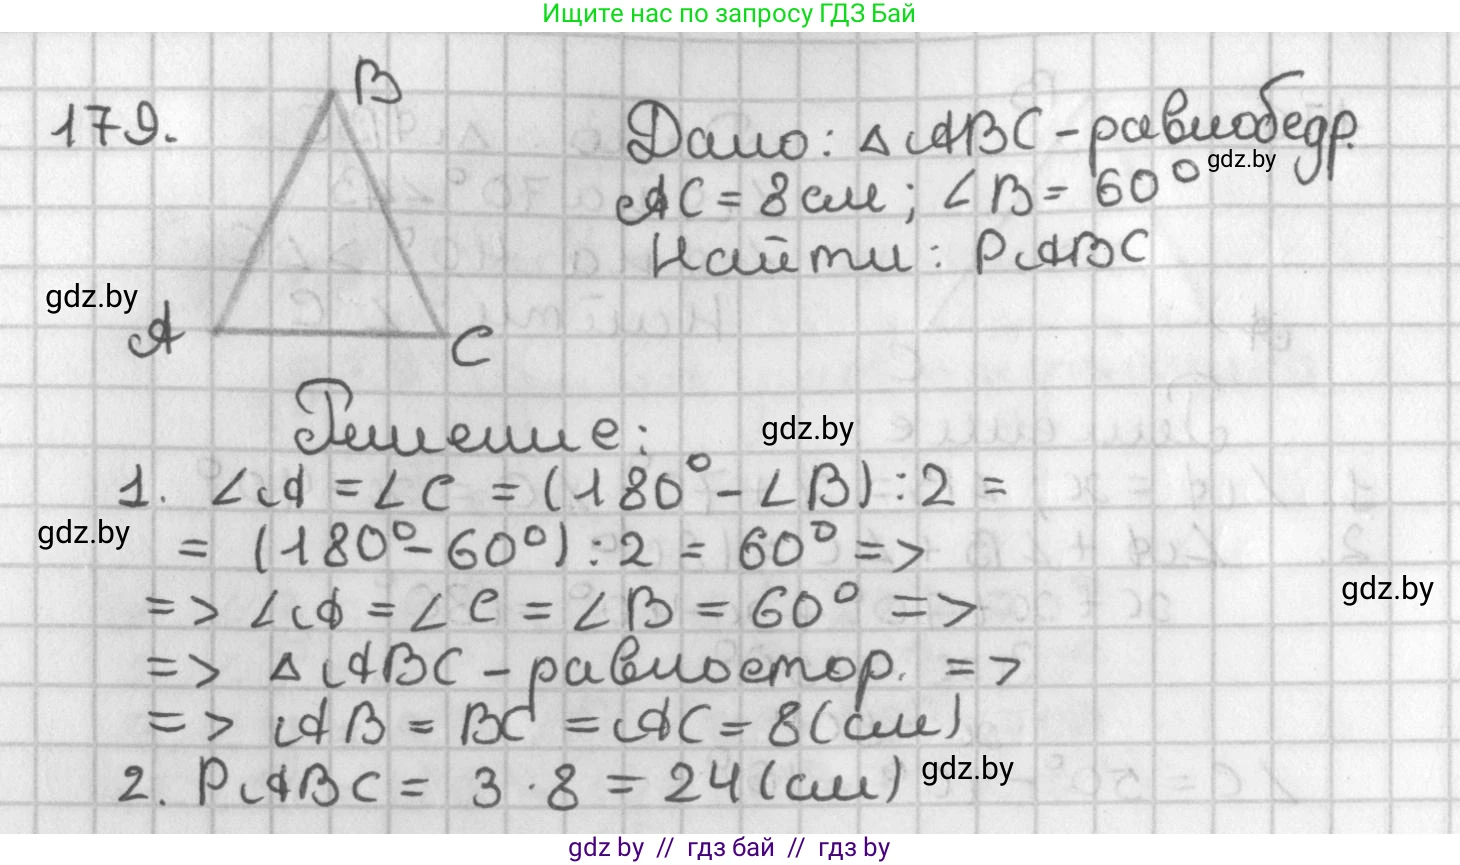 Ищите нас по запросу ГДЗ Бай
179.
B
A
C
Дано: △ABC - равнобедр.
gdz.by
AC = 8 см; ∠B = 60°
Найти: PABC
gdz.by
Решение:
gdz.by
1. ∠A = ∠C = (180° - ∠B) : 2 =
gdz.by
= (180° - 60°) : 2 = 60° =>
gdz.by
=> ∠A = ∠C = ∠B = 60° =>
=> △ABC - равностор. =>
=> AB = BC = AC = 8 (см)
gdz.by
2. PABC = 3 · 8 = 24 (см)
gdz by // гдз бай // гдз by